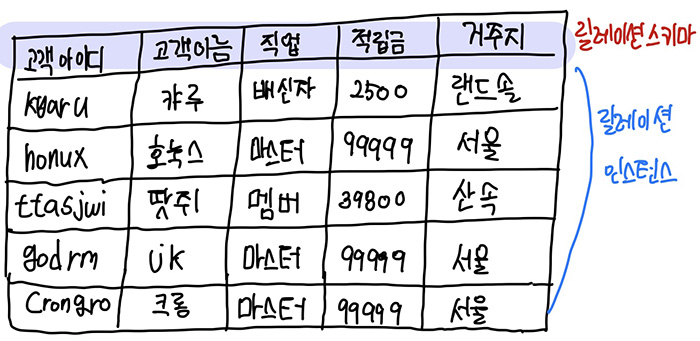 고객아이디 고객이름 직업 적립금 거주지 릴레이션 스키마
kyaru 캬루 배신자 2500 랜드솔
honux 호눅스 마스터 99999 서울
ttasjwi 땃쥐 멤버 39800 산속
godrm JK 마스터 99999 서울
Crongro 크롱 마스터 99999 서울
릴레이션
인스턴스